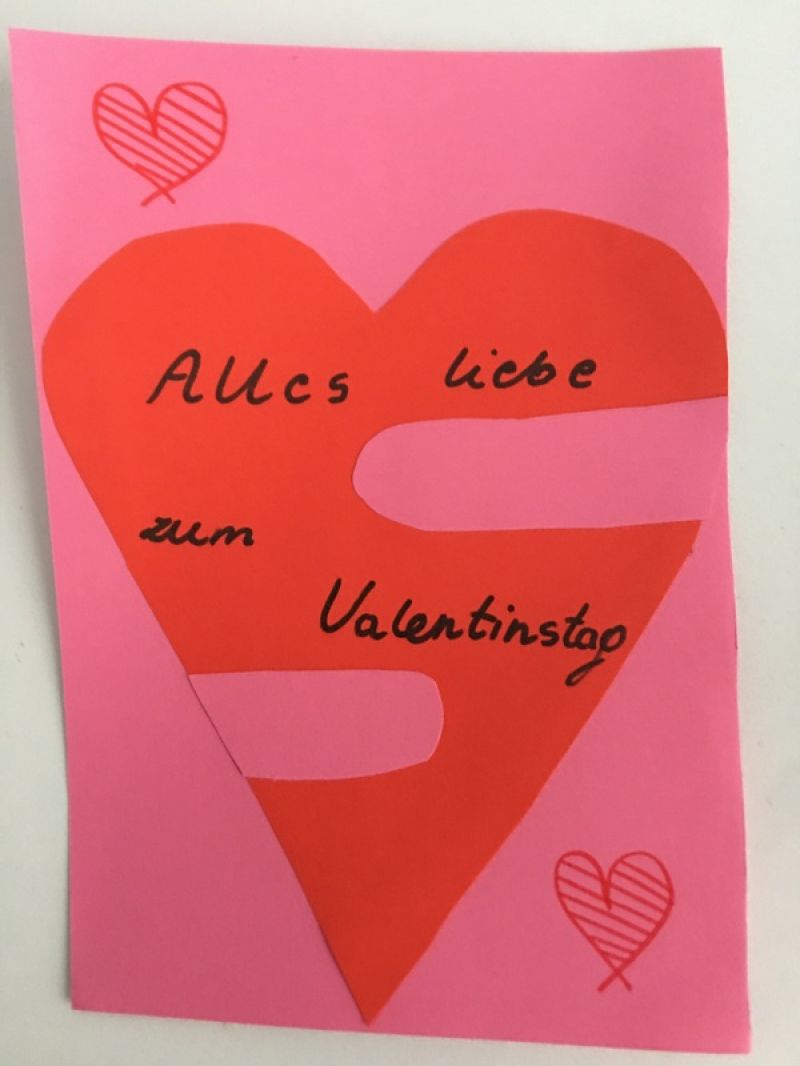 Alles liebe
zum
Valentinstag